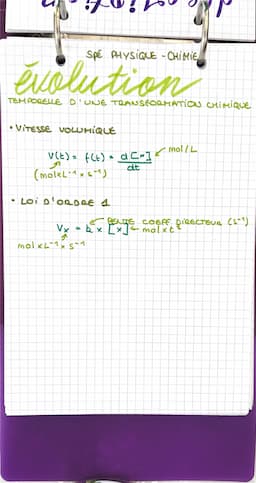 SPÉ PHYSIQUE - CHIMIE
évolution
TEMPORELLE D'UNE TRANSFORMATION CHIMIQUE
• VITESSE VOLUMIQUE
mol/L
V(t) = f(t) = d[x]/dt
(mol×L⁻¹×s⁻¹)
• LOI D'ORDRE 1
PENTE COEFF DIRECTEUR (s⁻¹)
Vx = k × [x] mol×L
mol×L⁻¹×s⁻¹